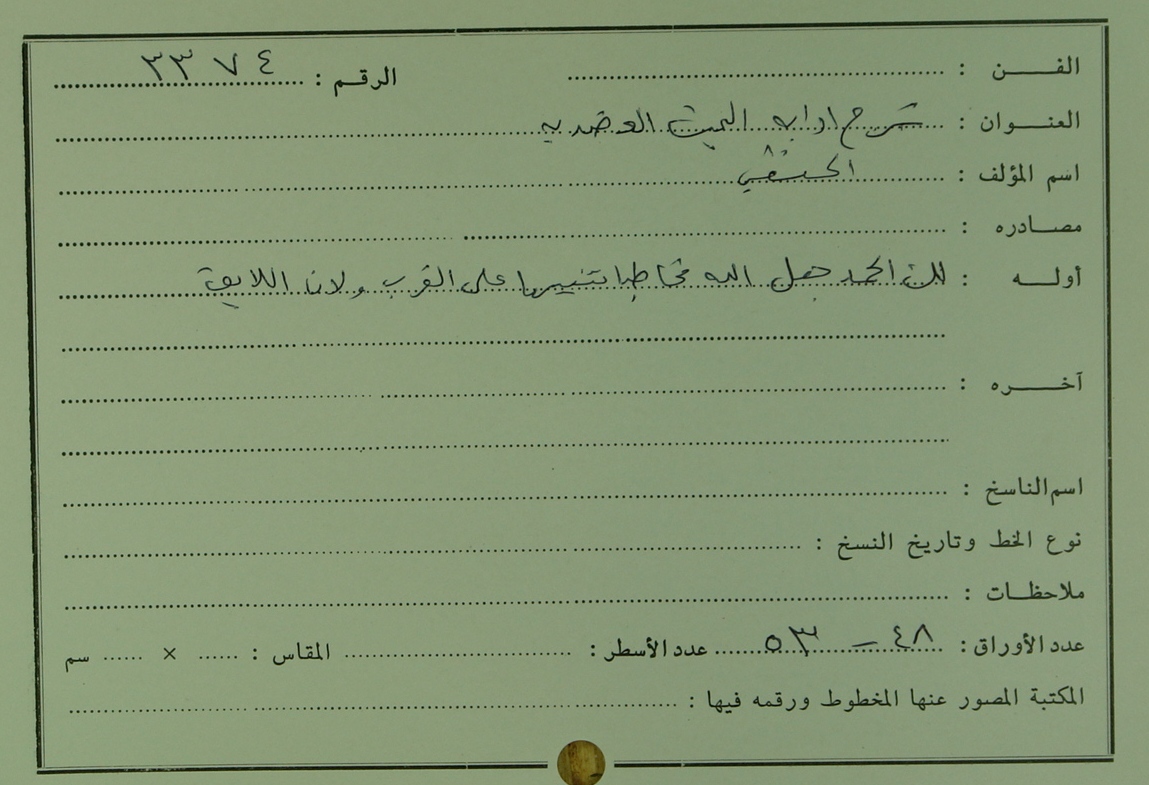 الفـــن : الرقم : ٣٣٧٤
العنـوان : شرح اداب البحث العضديه
اسم المؤلف : الحنفي
مصـادره :
أولـــه : لك الحمد جعل الله مخاطبا تنبيها على القرب ولان اللايق
آخـــره :
اسم الناسخ :
نوع الخط وتاريخ النسخ :
ملاحظـات :
عدد الأوراق : ٤٨ – ٥٣ عدد الأسطر : المقاس : × سم
المكتبة المصور عنها المخطوط ورقمه فيها :